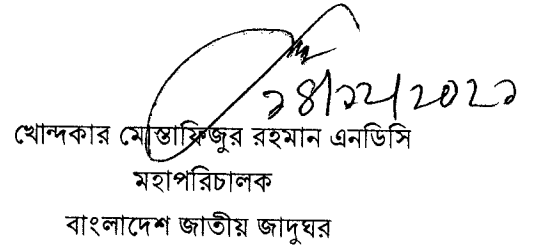 ১৪/১২/২০২১
খোন্দকার মোস্তাফিজুর রহমান এনডিসি
মহাপরিচালক
বাংলাদেশ জাতীয় জাদুঘর